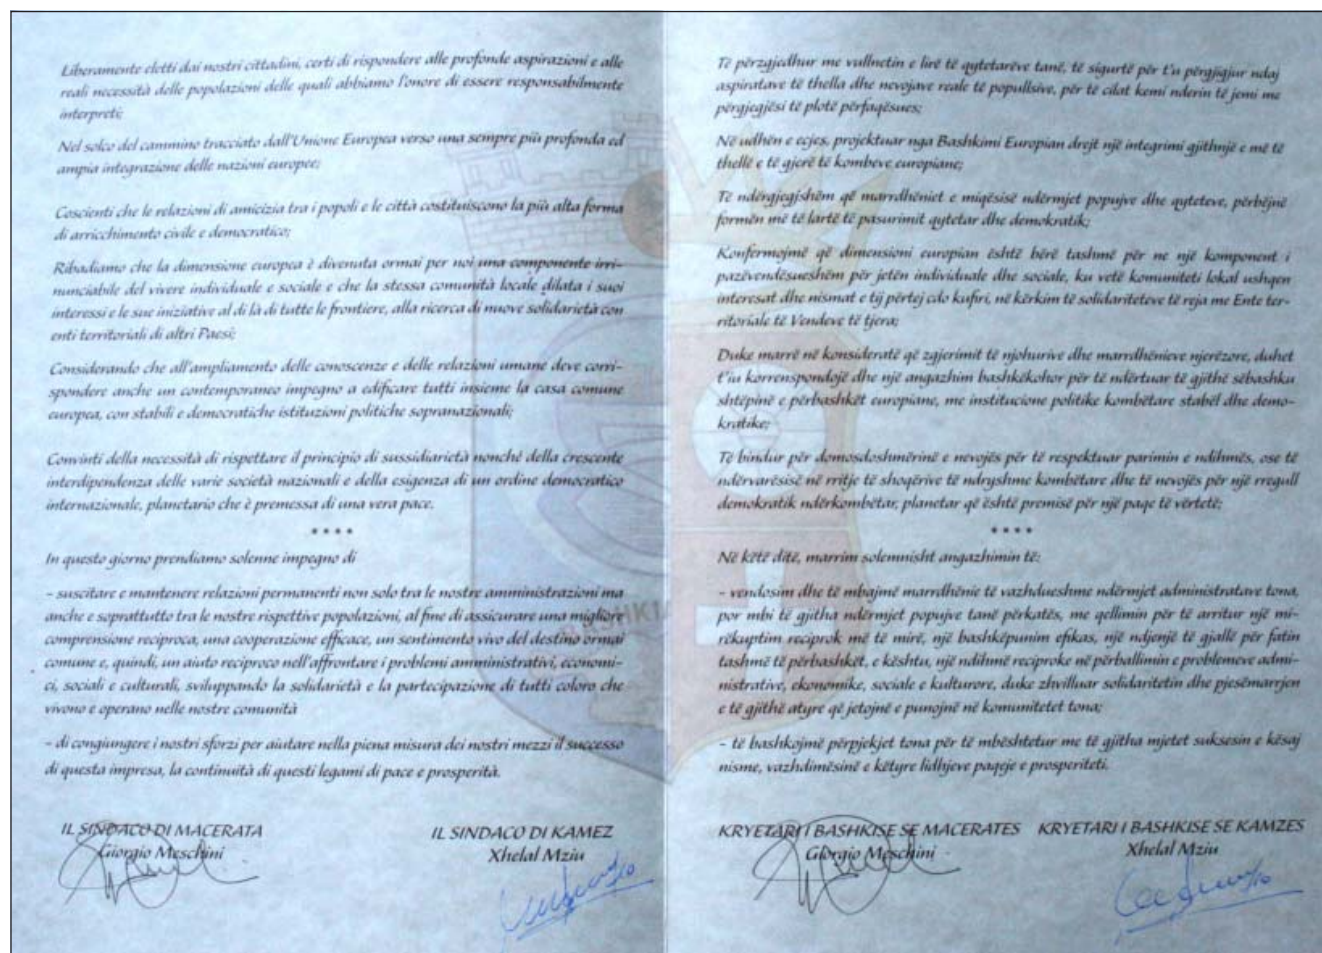 Liberamente eletti dai nostri cittadini, certi di rispondere alle profonde aspirazioni e alle
reali necessità delle popolazioni delle quali abbiamo l'onore di essere responsabilmente
interpreti;
Nel solco del cammino tracciato dall'Unione Europea verso una sempre più profonda ed
ampia integrazione delle nazioni europee;
Coscienti che le relazioni di amicizia tra i popoli e le città costituiscono la più alta forma
di arricchimento civile e democratico;
Ribadiamo che la dimensione europea è divenuta ormai per noi una componente irri-
nunciabile del vivere individuale e sociale e che la stessa comunità locale dilata i suoi
interessi e le sue iniziative al di là di tutte le frontiere, alla ricerca di nuove solidarietà con
enti territoriali di altri Paesi;
Considerando che all'ampliamento delle conoscenze e delle relazioni umane deve corri-
spondere anche un contemporaneo impegno a edificare tutti insieme la casa comune
europea, con stabili e democratiche istituzioni politiche sopranazionali;
Convinti della necessità di rispettare il principio di sussidiarietà nonché della crescente
interdipendenza delle varie società nazionali e della esigenza di un ordine democratico
internazionale, planetario che è premessa di una vera pace.
* * * *
In questo giorno prendiamo solenne impegno di
- suscitare e mantenere relazioni permanenti non solo tra le nostre amministrazioni ma
anche e soprattutto tra le nostre rispettive popolazioni, al fine di assicurare una migliore
comprensione reciproca, una cooperazione efficace, un sentimento vivo del destino ormai
comune e, quindi, un aiuto reciproco nell'affrontare i problemi amministrativi, economi-
ci, sociali e culturali, sviluppando la solidarietà e la partecipazione di tutti coloro che
vivono e operano nelle nostre comunità
- di congiungere i nostri sforzi per aiutare nella piena misura dei nostri mezzi il successo
di questa impresa, la continuità di questi legami di pace e prosperità.
IL SINDACO DI MACERATA
Giorgio Meschini
IL SINDACO DI KAMEZ
Xhelal Mziu
Të përzgjedhur me vullnetin e lirë të qytetarëve tanë, të sigurtë për t'u përgjigjur ndaj
aspiratave të thella dhe nevojave reale të popullsive, për të cilat kemi nderin të jemi me
përgjegjësi të plotë përfaqësues;
Në udhën e ecjes, projektuar nga Bashkimi Europian drejt një integrimi gjithnjë e më të
thellë e të gjerë të kombeve europiane;
Të ndërgjegjshëm që marrdhëniet e miqësisë ndërmjet popujve dhe qyteteve, përbëjnë
formën më të lartë të pasurimit qytetar dhe demokratik;
Konfermojmë që dimensioni europian është bërë tashmë për ne një komponent i
pazëvendësueshëm për jetën individuale dhe sociale, ku vetë komuniteti lokal ushqen
interesat dhe nismat e tij përtej cdo kufiri, në kërkim të solidariteteve të reja me Ente ter-
ritoriale të Vendeve të tjera;
Duke marrë në konsideratë që zgjerimit të njohurive dhe marrdhënieve njerëzore, duhet
t'iu korrenspondojë dhe një angazhim bashkëkohor për të ndërtuar të gjithë sëbashku
shtëpinë e përbashkët europiane, me institucione politike kombëtare stabël dhe demo-
kratike;
Të bindur për domosdoshmërinë e nevojës për të respektuar parimin e ndihmës, ose të
ndërvarësisë në rritje të shoqërive të ndryshme kombëtare dhe të nevojës për një rregull
demokratik ndërkombëtar, planetar që është premisë për një paqe të vërtetë;
* * * *
Në këtë ditë, marrim solemnisht angazhimin të:
- vendosim dhe të mbajmë marrdhënie të vazhdueshme ndërmjet administratave tona,
por mbi të gjitha ndërmjet popujve tanë përkatës, me qellimin për të arritur një mi-
rëkuptim reciprok më të mirë, një bashkëpunim efikas, një ndjenjë të gjallë për fatin
tashmë të përbashkët, e kështu, një ndihmë reciproke në përballimin e problemeve admi-
nistrative, ekonomike, sociale e kulturore, duke zhvilluar solidaritetin dhe pjesëmarrjen
e të gjithë atyre që jetojnë e punojnë në komunitetet tona;
- të bashkojmë përpjekjet tona për të mbështetur me të gjitha mjetet suksesin e kësaj
nisme, vazhdimësinë e këtyre lidhjeve paqeje e prosperiteti.
KRYETARI I BASHKISE SE MACERATES
Giorgio Meschini
KRYETARI I BASHKISE SE KAMZES
Xhelal Mziu